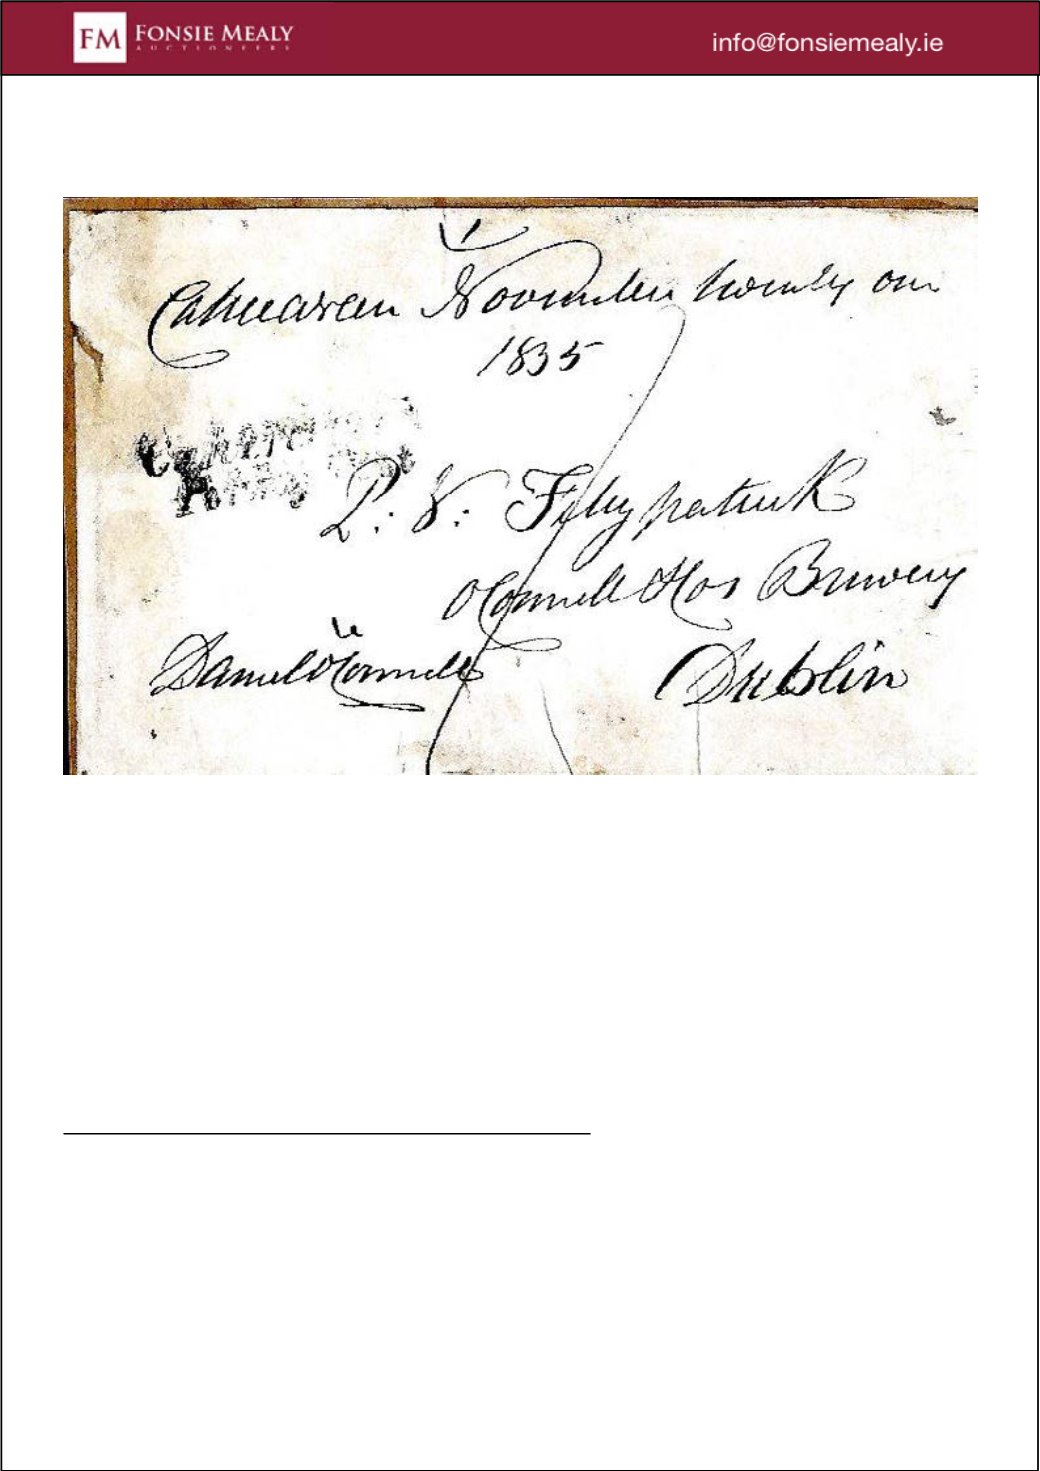 FM FONSIE MEALY
AUCTIONEERS
info@fonsiemealy.ie
Cahirciveen November twenty one
1835
Penny Post
P. V. Fitzpatrick
O'Connell & Cos Brewery
Daniel O'Connell
Dublin